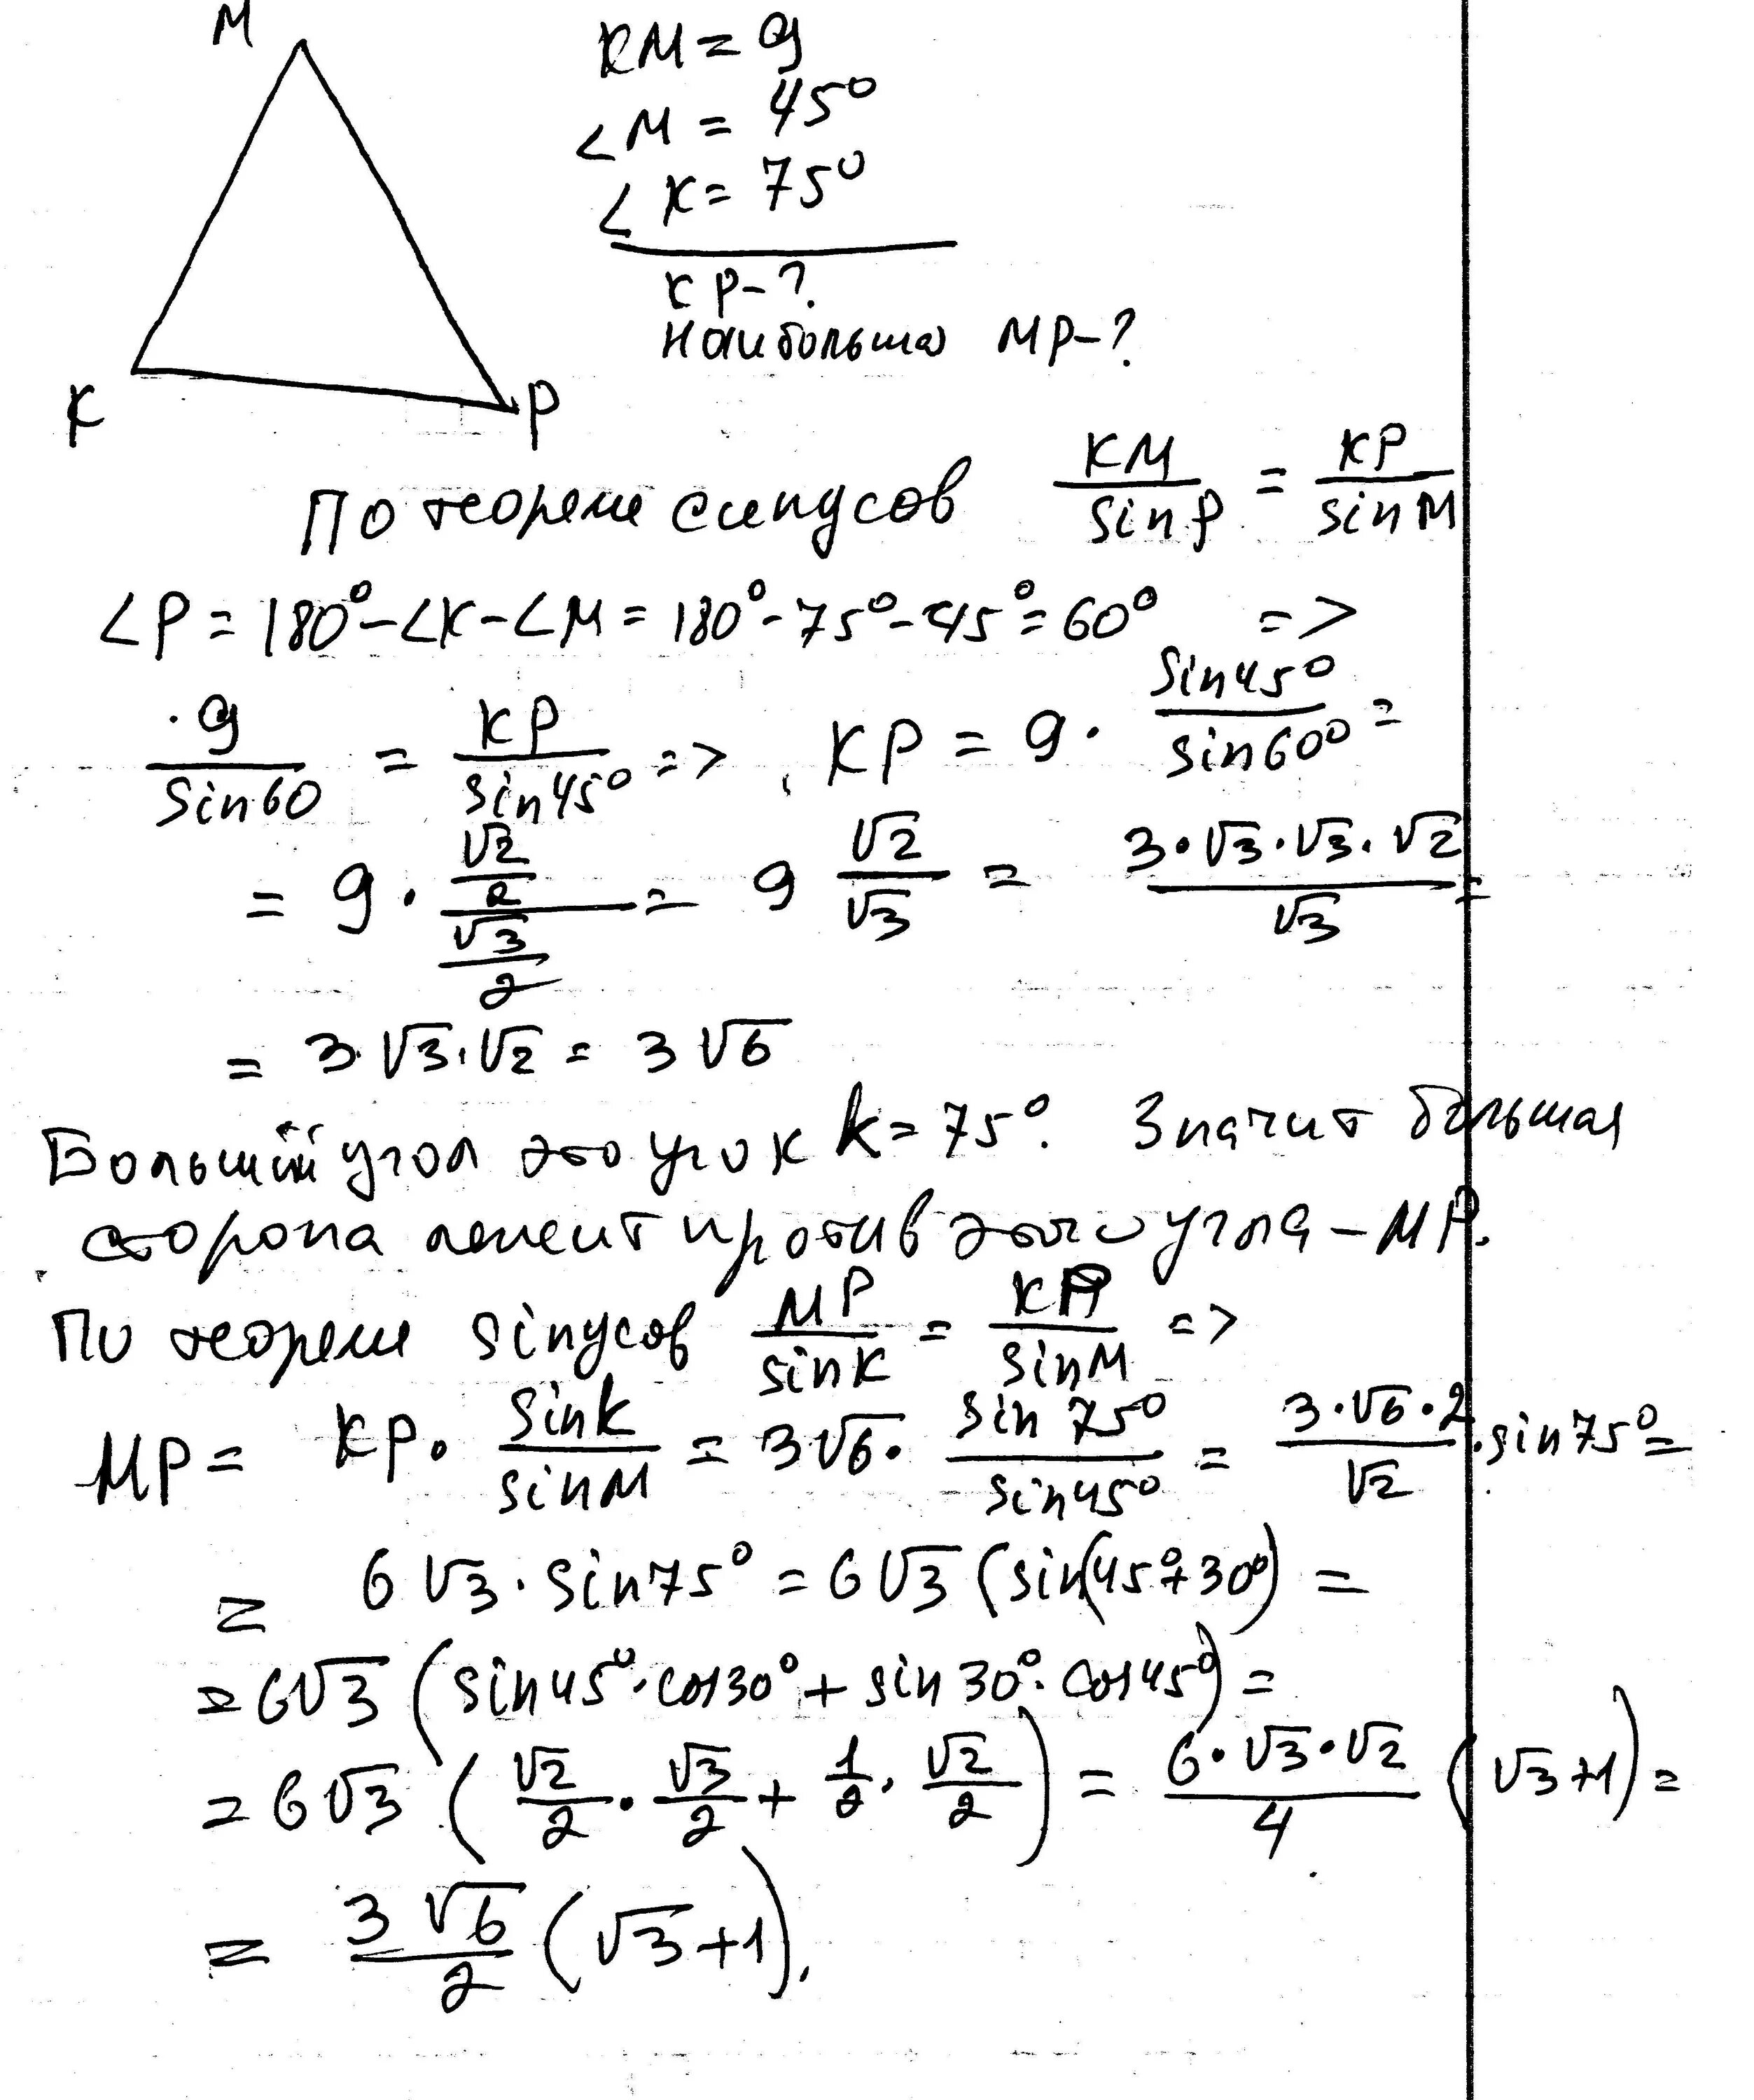 M
KM = 9
∠M = 45°
∠K = 75°
KP - ?
Наибольшая MP - ?
K
P
По теореме синусов KM/sin P = KP/sin M
∠P = 180° - ∠K - ∠M = 180° - 75° - 45° = 60° =>
9/sin 60 = KP/sin 45° => KP = 9 · sin 45°/sin 60° =
= 9 · (√2/2)/(√3/2) = 9 √2/√3 = (3·√3·√3·√2)/√3 =
= 3·√3·√2 = 3√6
Больший угол это угол K = 75°. Значит большая
сторона лежит против этого угла - MP.
По теореме sinусов MP/sin K = KP/sin M =>
MP = KP · sin K/sin M = 3√6 · sin 75°/sin 45° = (3·√6·2)/√2 · sin 75° =
= 6√3 · sin 75° = 6√3 (sin(45°+30°) =
= 6√3 (sin 45° · cos 30° + sin 30° · cos 45°) =
= 6√3 (√2/2 · √3/2 + 1/2 · √2/2) = (6·√3·√2)/4 (√3+1) =
= 3√6/2 (√3+1).